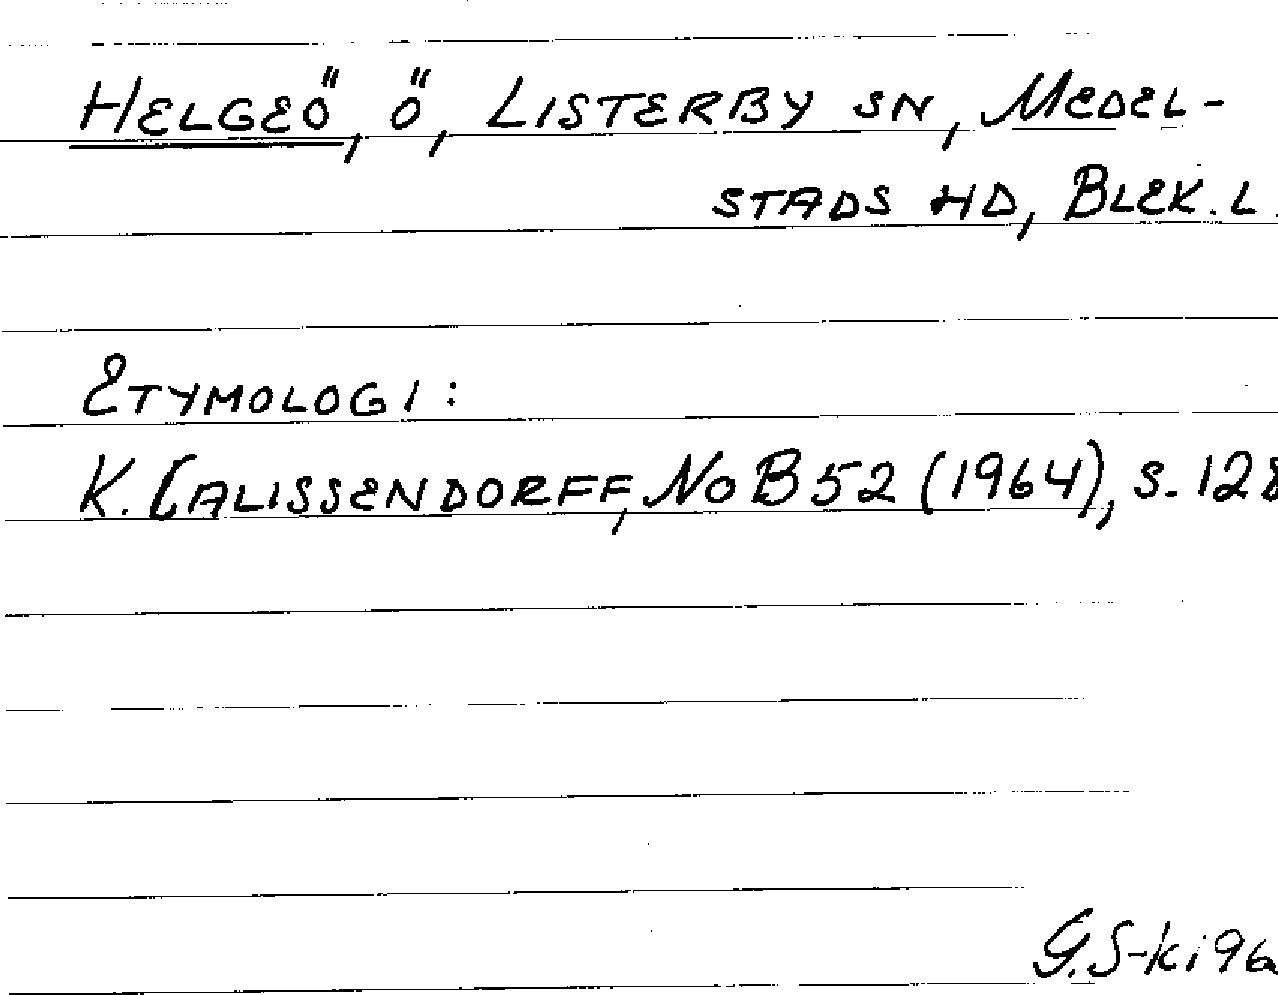 HELGEÖ, Ö, LISTERBY SN, MEDEL-
STADS HD, BLEK. L.
ETYMOLOGI:
K. CALISSENDORFF, NoB 52 (1964), S. 128
G.S-ki 96